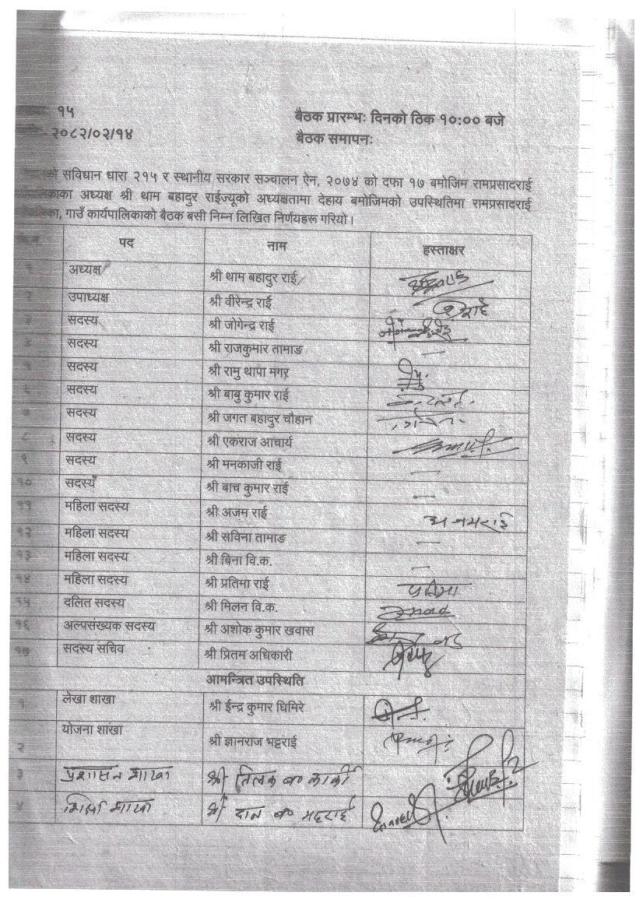 १५ बैठक प्रारम्भः दिनको ठिक १०:०० बजे
२०८२/०२/१४ बैठक समापनः
संविधान धारा २१५ र स्थानीय सरकार सञ्चालन ऐन, २०७४ को दफा १७ बमोजिम रामप्रसादराई
अध्यक्ष श्री थाम बहादुर राईज्यूको अध्यक्षतामा देहाय बमोजिमको उपस्थितिमा रामप्रसादराई
गाउँ कार्यपालिकाको बैठक बसी निम्न लिखित निर्णयहरू गरियो ।
पद नाम हस्ताक्षर
१ अध्यक्ष श्री थाम बहादुर राई
२ उपाध्यक्ष श्री वीरेन्द्र राई
३ सदस्य श्री जोगेन्द्र राई
४ सदस्य श्री राजकुमार तामाङ
५ सदस्य श्री रामु थापा मगर
६ सदस्य श्री बाबु कुमार राई
७ सदस्य श्री जगत बहादुर चौहान
८ सदस्य श्री एकराज आचार्य
९ सदस्य श्री मनकाजी राई
१० सदस्य श्री बाच कुमार राई
११ महिला सदस्य श्री अजम राई
१२ महिला सदस्य श्री सविना तामाङ
१३ महिला सदस्य श्री बिना वि.क.
१४ महिला सदस्य श्री प्रतिमा राई
१५ दलित सदस्य श्री मिलन वि.क.
१६ अल्पसंख्यक सदस्य श्री अशोक कुमार खवास
१७ सदस्य सचिव श्री प्रितम अधिकारी
आमन्त्रित उपस्थिति
१ लेखा शाखा श्री ईन्द्र कुमार घिमिरे
२ योजना शाखा श्री ज्ञानराज भट्टराई
३ प्रशासन शाखा श्री तिलक ब० कार्की
४ शिक्षा शाखा श्री दान ब० भट्टराई